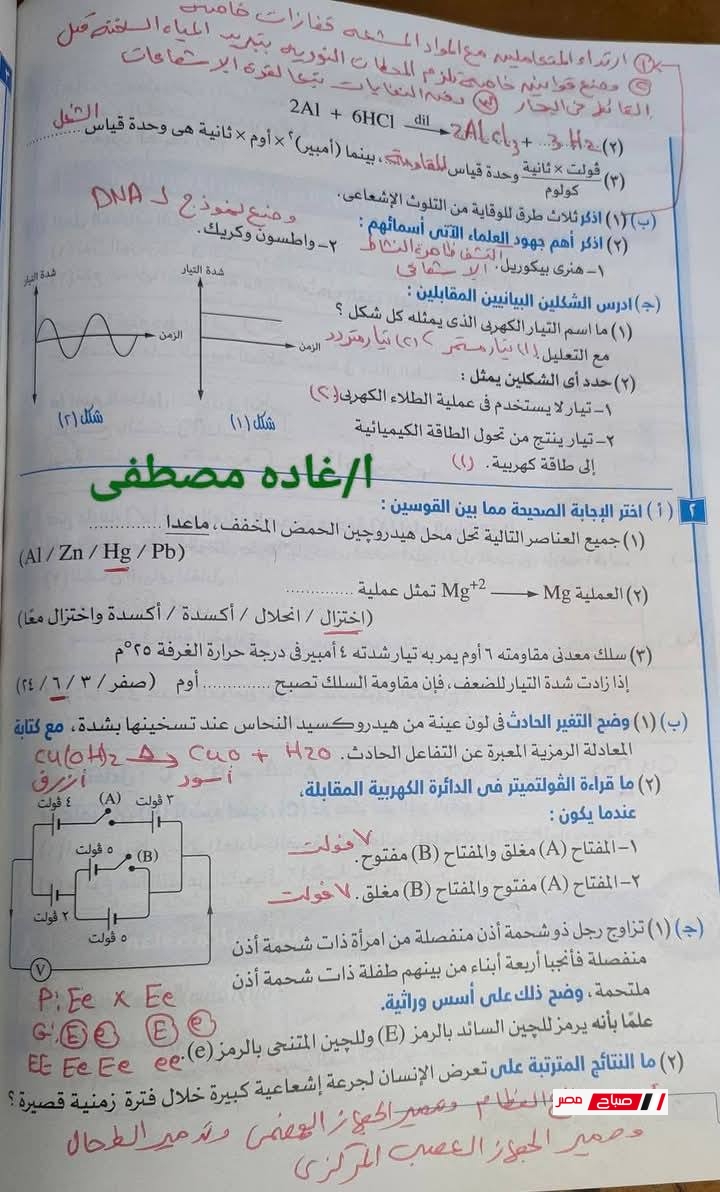 ① ارتداء المتعاملين مع المواد المشعه قفازات خاصه
② وضع قوانين خاصة تلزم المحطات النوويه بتبريد المياه الساخنة قبل
القائها فى البحار ③ دفن النفايات تبعا لقوة الاشعاعات
2Al + 6HCl dil 2AlCl3 + ...3H2 (٢)
(٣) ڤولت × ثانية / كولوم وحدة قياس المقاومة، بينما (أمبير)٢ × أوم × ثانية هى وحدة قياس الشغل
(ب) (١) اذكر ثلاث طرق للوقاية من التلوث الإشعاعى.
وضع نموذج لـ DNA
(٢) اذكر أهم جهود العلماء الآتى أسمائهم :
١- هنرى بيكوريل. اكتشف ظاهرة النشاط الاشعاعى
٢- واطسون وكريك.
(جـ) ادرس الشكلين البيانيين المقابلين :
(١) ما اسم التيار الكهربى الذى يمثله كل شكل ؟
مع التعليل. (١) تيار مستمر (٢) تيار متردد
(٢) حدد أى الشكلين يمثل :
١- تيار لا يستخدم فى عملية الطلاء الكهربى. (٢)
٢- تيار ينتج من تحول الطاقة الكيميائية
إلى طاقة كهربية. (١)
شدة التيار
الزمن
شكل (١)
شدة التيار
الزمن
شكل (٢)
ا/غاده مصطفى
٢ (أ) اختر الإجابة الصحيحة مما بين القوسين :
(١) جميع العناصر التالية تحل محل هيدروچين الحمض المخفف، ماعدا ..............
(Al / Zn / Hg / Pb)
(٢) العملية Mg+2 ⟶ Mg تمثل عملية ..............
(اختزال / انحلال / أكسدة / أكسدة واختزال معًا)
(٣) سلك معدنى مقاومته ٦ أوم يمر به تيار شدته ٤ أمبير فى درجة حرارة الغرفة ٢٥°م
إذا زادت شدة التيار للضعف، فإن مقاومة السلك تصبح .............. أوم (صفر / ٣ / ٦ / ٢٤)
(ب) (١) وضح التغير الحادث فى لون عينة من هيدروكسيد النحاس عند تسخينها بشدة، مع كتابة
المعادلة الرمزية المعبرة عن التفاعل الحادث.
Cu(OH)2 Δ→ CuO + H2O
أزرق أسود
(٢) ما قراءة الڤولتميتر فى الدائرة الكهربية المقابلة،
عندما يكون :
١- المفتاح (A) مغلق والمفتاح (B) مفتوح. ٧ فولت
٢- المفتاح (A) مفتوح والمفتاح (B) مغلق. ٧ فولت
٤ ڤولت
(A)
٣ ڤولت
٥ ڤولت
(B)
٢ ڤولت
٥ ڤولت
V
(جـ) (١) تزاوج رجل ذو شحمة أذن منفصلة من امرأة ذات شحمة أذن
منفصلة فأنجبا أربعة أبناء من بينهم طفلة ذات شحمة أذن
ملتحمة، وضح ذلك على أسس وراثية.
علمًا بأنه يرمز للچين السائد بالرمز (E) وللچين المتنحى بالرمز (e).
P: Ee × Ee
G: E e E e
EE Ee Ee ee
(٢) ما النتائج المترتبة على تعرض الإنسان لجرعة إشعاعية كبيرة خلال فترة زمنية قصيرة ؟
العظام وتدمير الجهاز الهضمى وتدمير الطحال
وتدمير الجهاز العصبى المركزى
صباح مصر